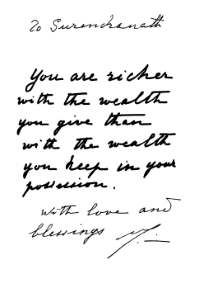 To Surendranath
You are richer
with the wealth
you give than
with the wealth
you keep in your
possession.
With love and
blessings